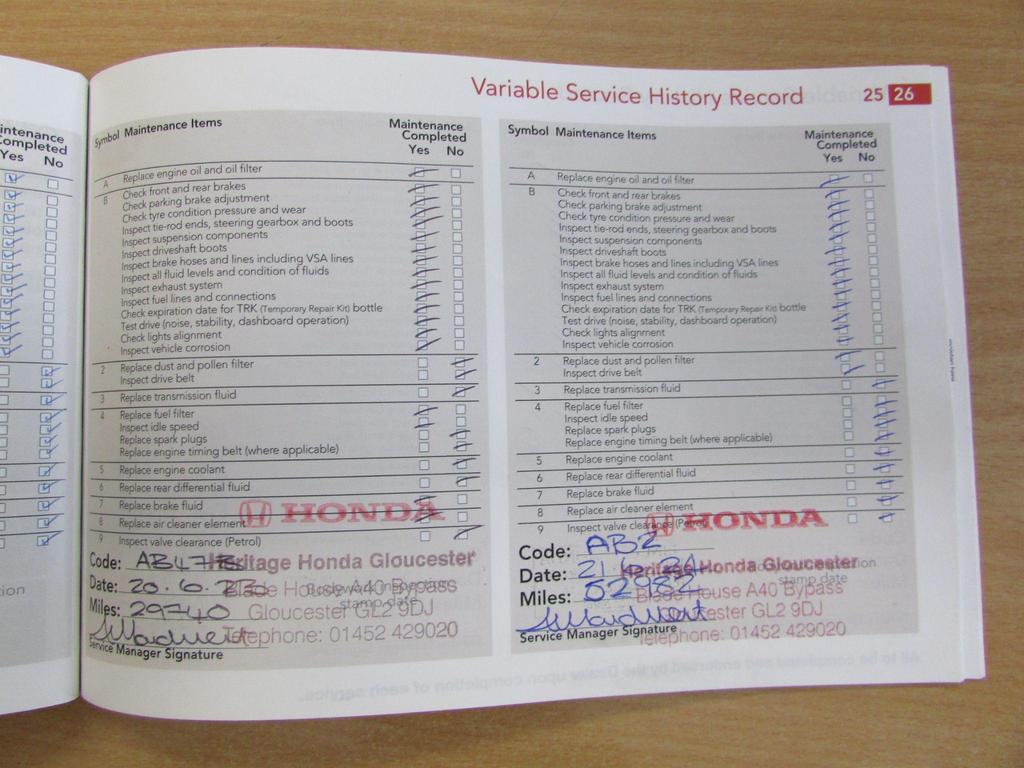 Variable Service History Record 25 26
Maintenance
Completed
Yes No
ion
Symbol Maintenance Items Maintenance
Completed
Yes No
A Replace engine oil and oil filter
B Check front and rear brakes
Check parking brake adjustment
Check tyre condition pressure and wear
Inspect tie-rod ends, steering gearbox and boots
Inspect suspension components
Inspect driveshaft boots
Inspect brake hoses and lines including VSA lines
Inspect all fluid levels and condition of fluids
Inspect exhaust system
Inspect fuel lines and connections
Check expiration date for TRK (Temporary Repair Kit) bottle
Test drive (noise, stability, dashboard operation)
Check lights alignment
Inspect vehicle corrosion
2 Replace dust and pollen filter
Inspect drive belt
3 Replace transmission fluid
4 Replace fuel filter
Inspect idle speed
Replace spark plugs
Replace engine timing belt (where applicable)
5 Replace engine coolant
6 Replace rear differential fluid
7 Replace brake fluid
8 Replace air cleaner element
9 Inspect valve clearance (Petrol)
HONDA
Heritage Honda Gloucester
Blade House A40 Bypass
Gloucester GL2 9DJ
Telephone: 01452 429020
Code: AB47
Date: 20.6.23
Miles: 29740
stamp date
Service Manager Signature
Symbol Maintenance Items Maintenance
Completed
Yes No
A Replace engine oil and oil filter
B Check front and rear brakes
Check parking brake adjustment
Check tyre condition pressure and wear
Inspect tie-rod ends, steering gearbox and boots
Inspect suspension components
Inspect driveshaft boots
Inspect brake hoses and lines including VSA lines
Inspect all fluid levels and condition of fluids
Inspect exhaust system
Inspect fuel lines and connections
Check expiration date for TRK (Temporary Repair Kit) bottle
Test drive (noise, stability, dashboard operation)
Check lights alignment
Inspect vehicle corrosion
2 Replace dust and pollen filter
Inspect drive belt
3 Replace transmission fluid
4 Replace fuel filter
Inspect idle speed
Replace spark plugs
Replace engine timing belt (where applicable)
5 Replace engine coolant
6 Replace rear differential fluid
7 Replace brake fluid
8 Replace air cleaner element
9 Inspect valve clearance (Petrol)
HONDA
Heritage Honda Gloucester
Blade House A40 Bypass
Gloucester GL2 9DJ
Telephone: 01452 429020
Code: AB2
Date: 21.6.24
Miles: 52982
stamp date
Service Manager Signature